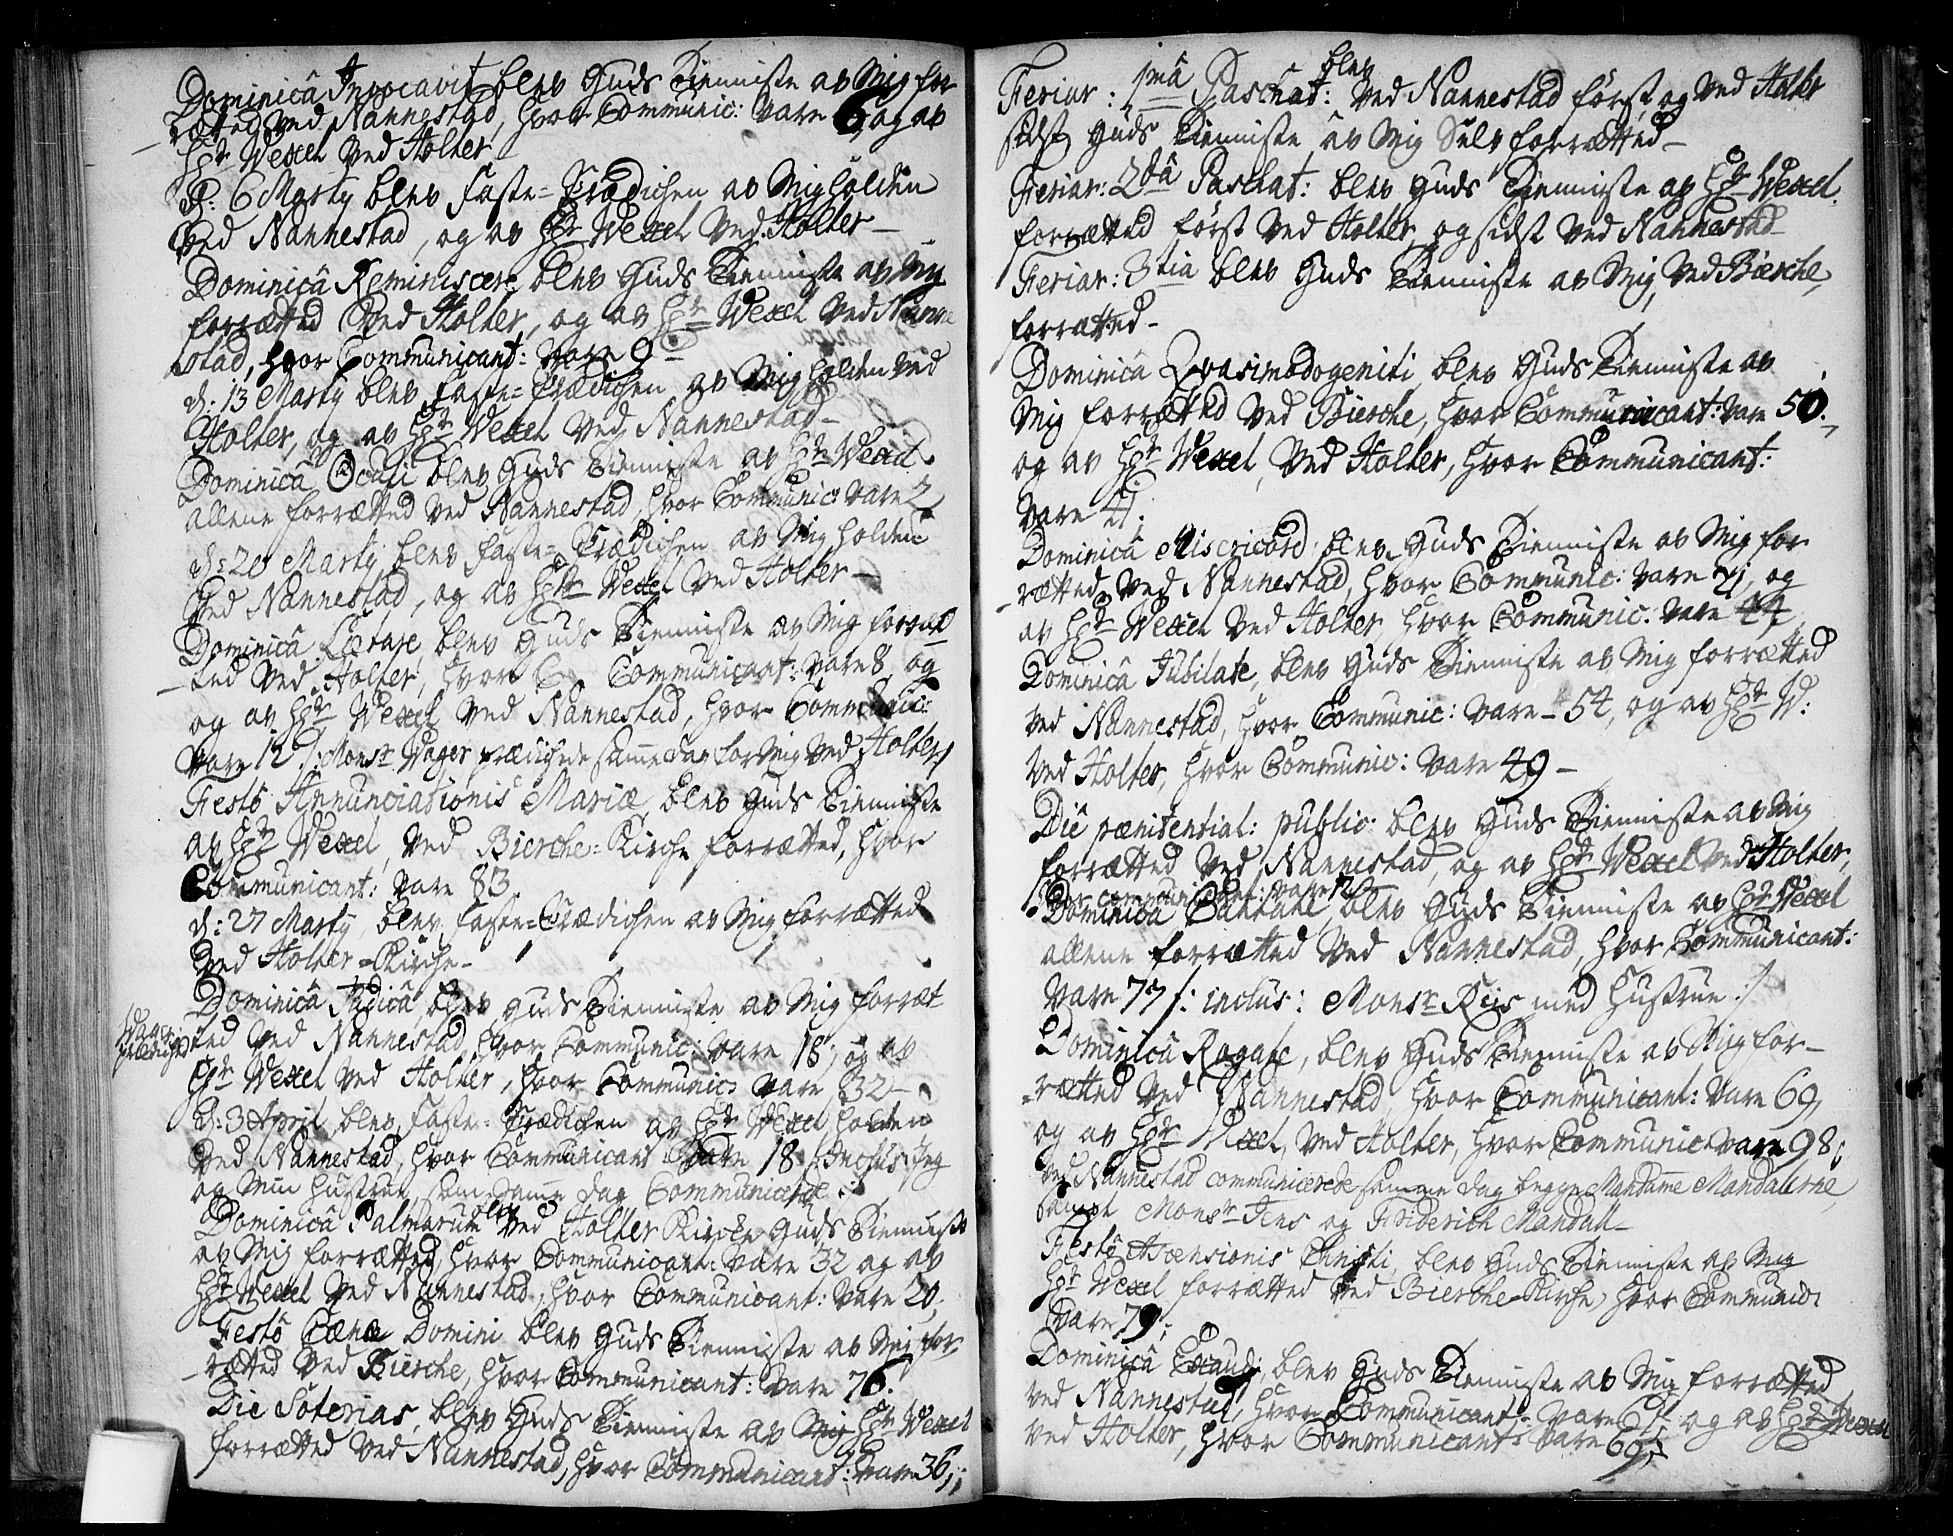 Dominicâ Invocavit blev Guds Tienniste av Mig for
rættet ved Nannestad, hvor Communic: vare 6, og av
Hr Wexel ved Holter
d: 6 Martij blev Faste-Prædichen av Mig holden
ved Nannestad, og av Hr Wexel ved Holter
Dominicâ Reminiscere blev Guds Tienniste av Mig
forrætted ved Holter, og av Hr Wexel ved Nanne
stad, hvor Communicant: vare 9
d: 13 Martij blev Faste-Prædichen av Mig holden ved
Holter, og av Hr Wexel ved Nannestad
Dominicâ Oculi blev Guds Tienniste av Hr Wexel
allene forrætted ved Nannestad, hvor Communic: vare 2
d: 20 Martij blev Faste-Prædichen av Mig holden
ved Nannestad, og av Hr Wexel ved Holter
Dominicâ Lætare, blev Guds Tienniste av Mig forræt
ted ved Holter, hvor Communicant: vare 8, og
og av Hr Wexel ved Nannestad, hvor Communic:
vare 12 /: Monsr Wager prædichede samme dag for Mig ved Holter /
Festô Annunciationis Mariæ, blev Guds Tienniste
av Hr Wexel, ved Bierche-Kirche forrætted, hvor
Communicant: vare 83.
d: 27 Martij blev Faste-Prædichen av Mig forrætted
ved Holter-Kirche
Dominicâ Judicâ, blev Guds Tienniste av Mig forræt
ted ved Nannestad, hvor Communic: vare 18, og av
Wager
prædiched
Hr Wexel ved Holter, hvor Communic: vare 32
d: 3 April blev Faste-Prædichen av Hr Wexel holden
ved Nannestad, hvor Communicant vare 18 /: Inclus: Jeg
og Min Hustrue, som samme dag Communicerte :/
Dominicâ Palmarum blev ved Holter Kirche Guds Tienniste
av Mig forrætted, hvor Communicant: vare 32 og av
Hr Wexel ved Nannestad, hvor Communicant: vare 20,
Festô Cænæ Domini blev Guds Tienniste av Mig for
rætted ved Bierche, hvor Communicant: vare 76.
Die Soterias, blev Guds Tienniste av Mig Hr Wexel
forrætted ved Nannestad, hvor Communicant: vare 36,
Feriar: 1mâ Paschat: blev ved Nannestad først, og ved Holter
sidst Guds Tienniste av Mig Selv forrætted
Feriar: 2dâ Paschat: blev Guds Tienniste av Hr Wexel
forrætted først ved Holter, og sidst ved Nannestad
Feriar: 3tia blev Guds Tienniste av Mig ved Bierche,
forrætted
Dominicâ Qvasimodogeniti blev Guds Tienniste av
Mig forrætted ved Bierche, hvor Communicant: vare 50.,
og av Hr Wexel, ved Holter, hvor Communicant:
vare 41.
Dominicâ Misericord: blev Guds Tienniste av Mig for
rætted ved Nannestad, hvor Communic: vare 21, og
av Hr Wexel ved Holter, hvor Communic: vare 44
Dominicâ Jubilate, blev Guds Tienniste av Mig forrætted
ved Nannestad, hvor Communic: vare 54, og av Hr W:
ved Holter, hvor Communic: vare 49
Die pænitential: public: blev Guds Tienniste av Mig
forrætted ved Nannestad, og av Hr Wexel ved Holter,
hvor communicant: vare 12
Dominicâ Cantate blev Guds Tienniste av Hr Wexel
allene forrætted ved Nannestad, hvor Communicant:
vare 77 /: inclus: Monsr Riis med Hustrue :/
Dominicâ Rogate, blev Guds Tienniste av Mig for
rætted ved Nannestad, hvor Communicant: vare 69,
og av Hr Wexel, ved Holter, hvor Communic: vare 98;
ved Nannestad communicerede samme dag begge Mandame Mandalerne,
sampt Monsr Jens og Friderich Mandall
Festô Ascensionis Christi, blev Guds Tienniste av Mig
Hr Wexel forrætted ved Bierche-Kirche, hvor Communic:
vare 79;
Dominicâ Exaudi, blev Guds Tienniste av Mig forrætted
ved Nannestad, hvor Communicant: vare 61 og av Hr Wexel
ved Holter, hvor Communicant: vare 69;